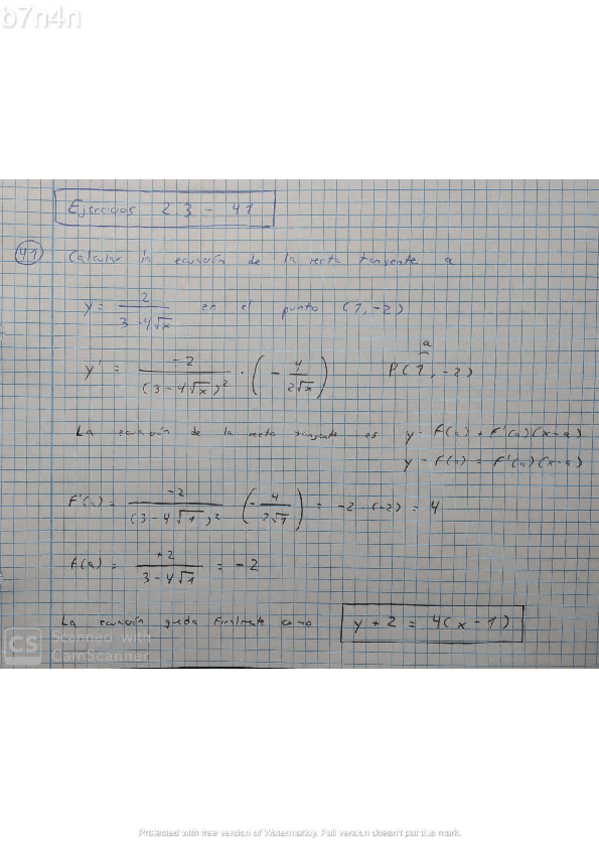 b7n4n
Ejercicios 2.3 - 41
41 Calcular la ecuación de la recta tangente a
y = 2 / (3 - 4√x) en el punto (1, -2)
y' = -2 / (3 - 4√x)² · (- 4 / 2√x) P(1, -2) a
La ecuación de la recta tangente es y = f(a) + f'(a)(x-a)
y - f(a) = f'(a)(x-a)
f'(a) = -2 / (3 - 4√1)² (- 4 / 2√1) = -2 · (-2) = 4
f(a) = +2 / (3 - 4√1) = -2
La ecuación queda finalmente como y + 2 = 4(x - 1)
CS Scanned with
CamScanner
Protected with free version of Watermarkly. Full version doesn't put this mark.